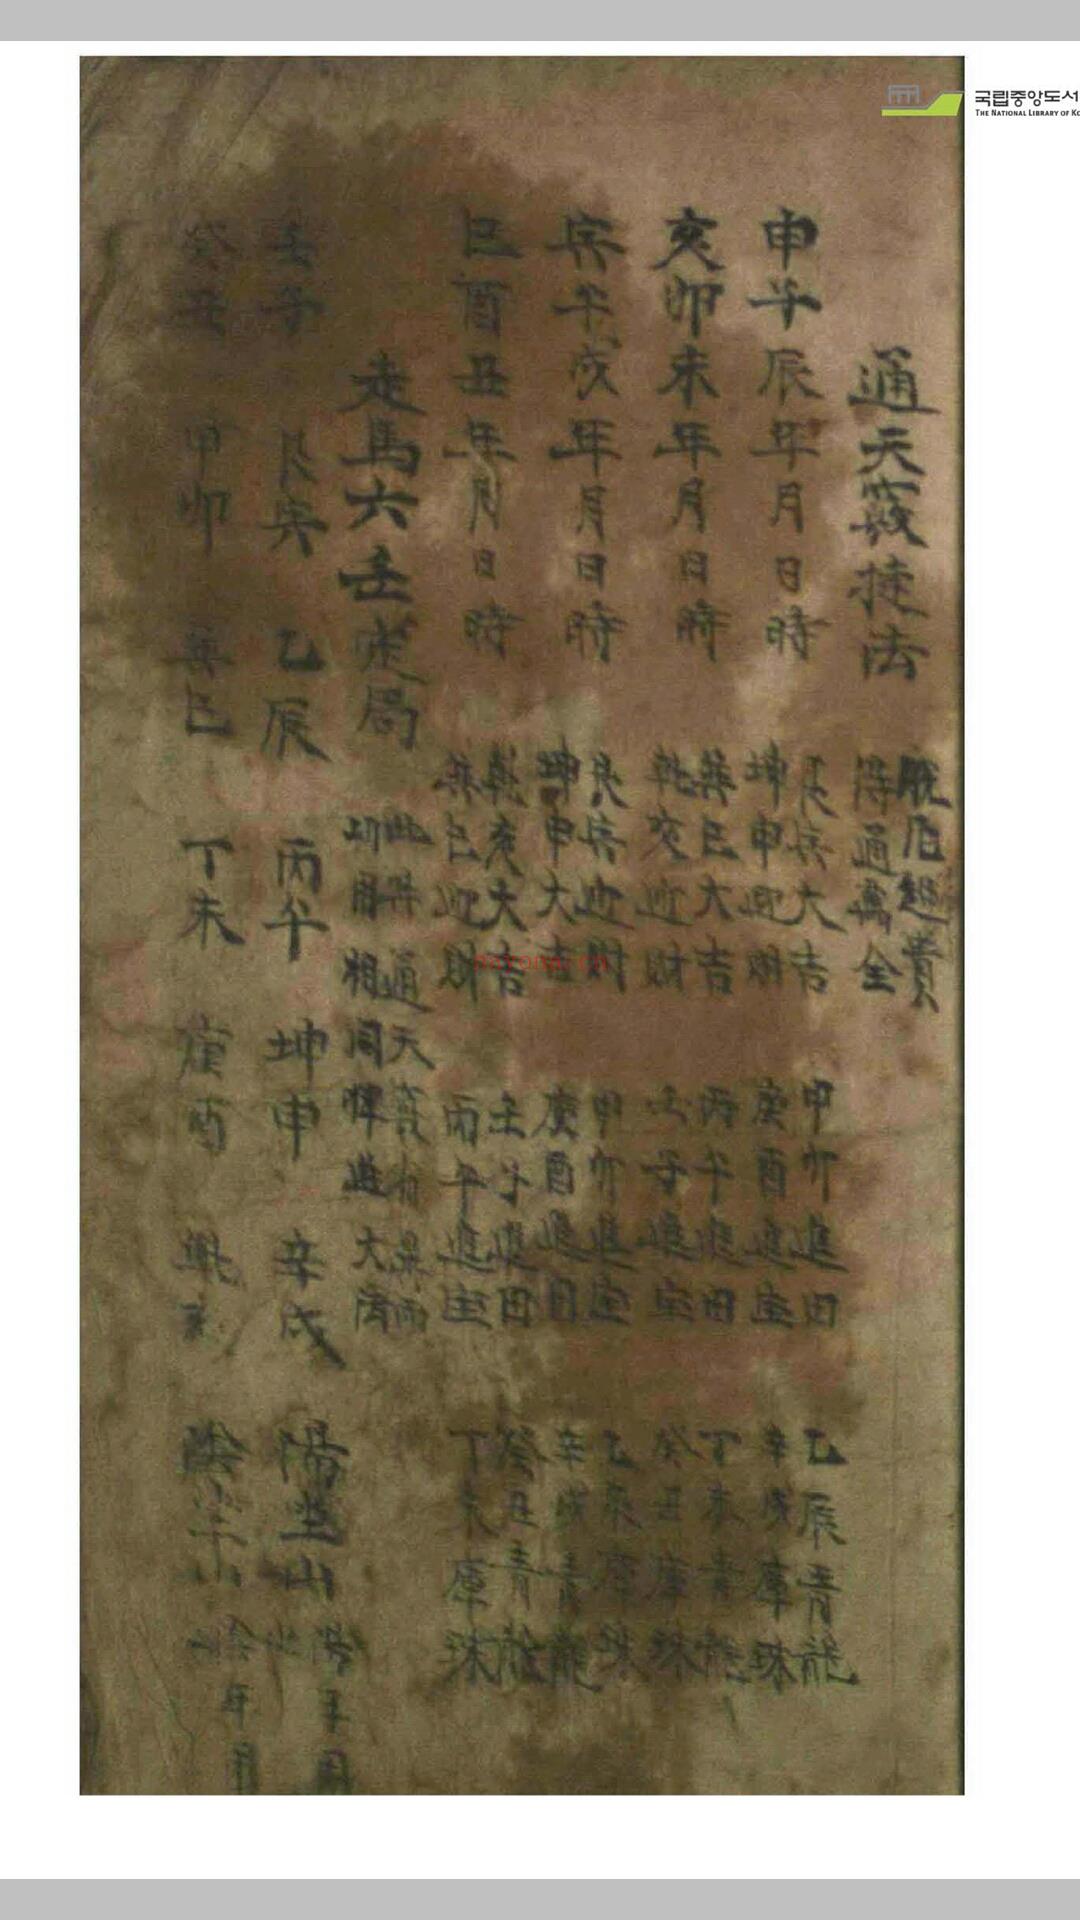 국립중앙도서
THE NATIONAL LIBRARY OF KO
通天竅捷法
脫厄超貴
得通萬全
申子辰年月日時
艮寅大吉
坤申迎財
甲卯進田
庚酉進宝
乙辰青龍
辛戌庫珠
亥卯未年月日時
巽巳大吉
乾亥迎財
丙午進田
壬子進宝
丁未青龍
癸丑庫珠
寅午戌年月日時
艮寅迎財
坤申大吉
甲卯進宝
庚酉進田
乙辰庫珠
辛戌青龍
巳酉丑年月日時
乾亥大吉
巽巳迎財
壬子進田
丙午進宝
癸丑青龍
丁未庫珠
走馬六壬定局
此與通天竅有異而
功用相同
大
壬子 艮寅 乙辰 丙午 坤申 辛戌 陽坐山 陽年月
癸丑 甲卯 巽巳 丁未 庚酉 乾亥 陰坐山 陰年月
nayona.cn